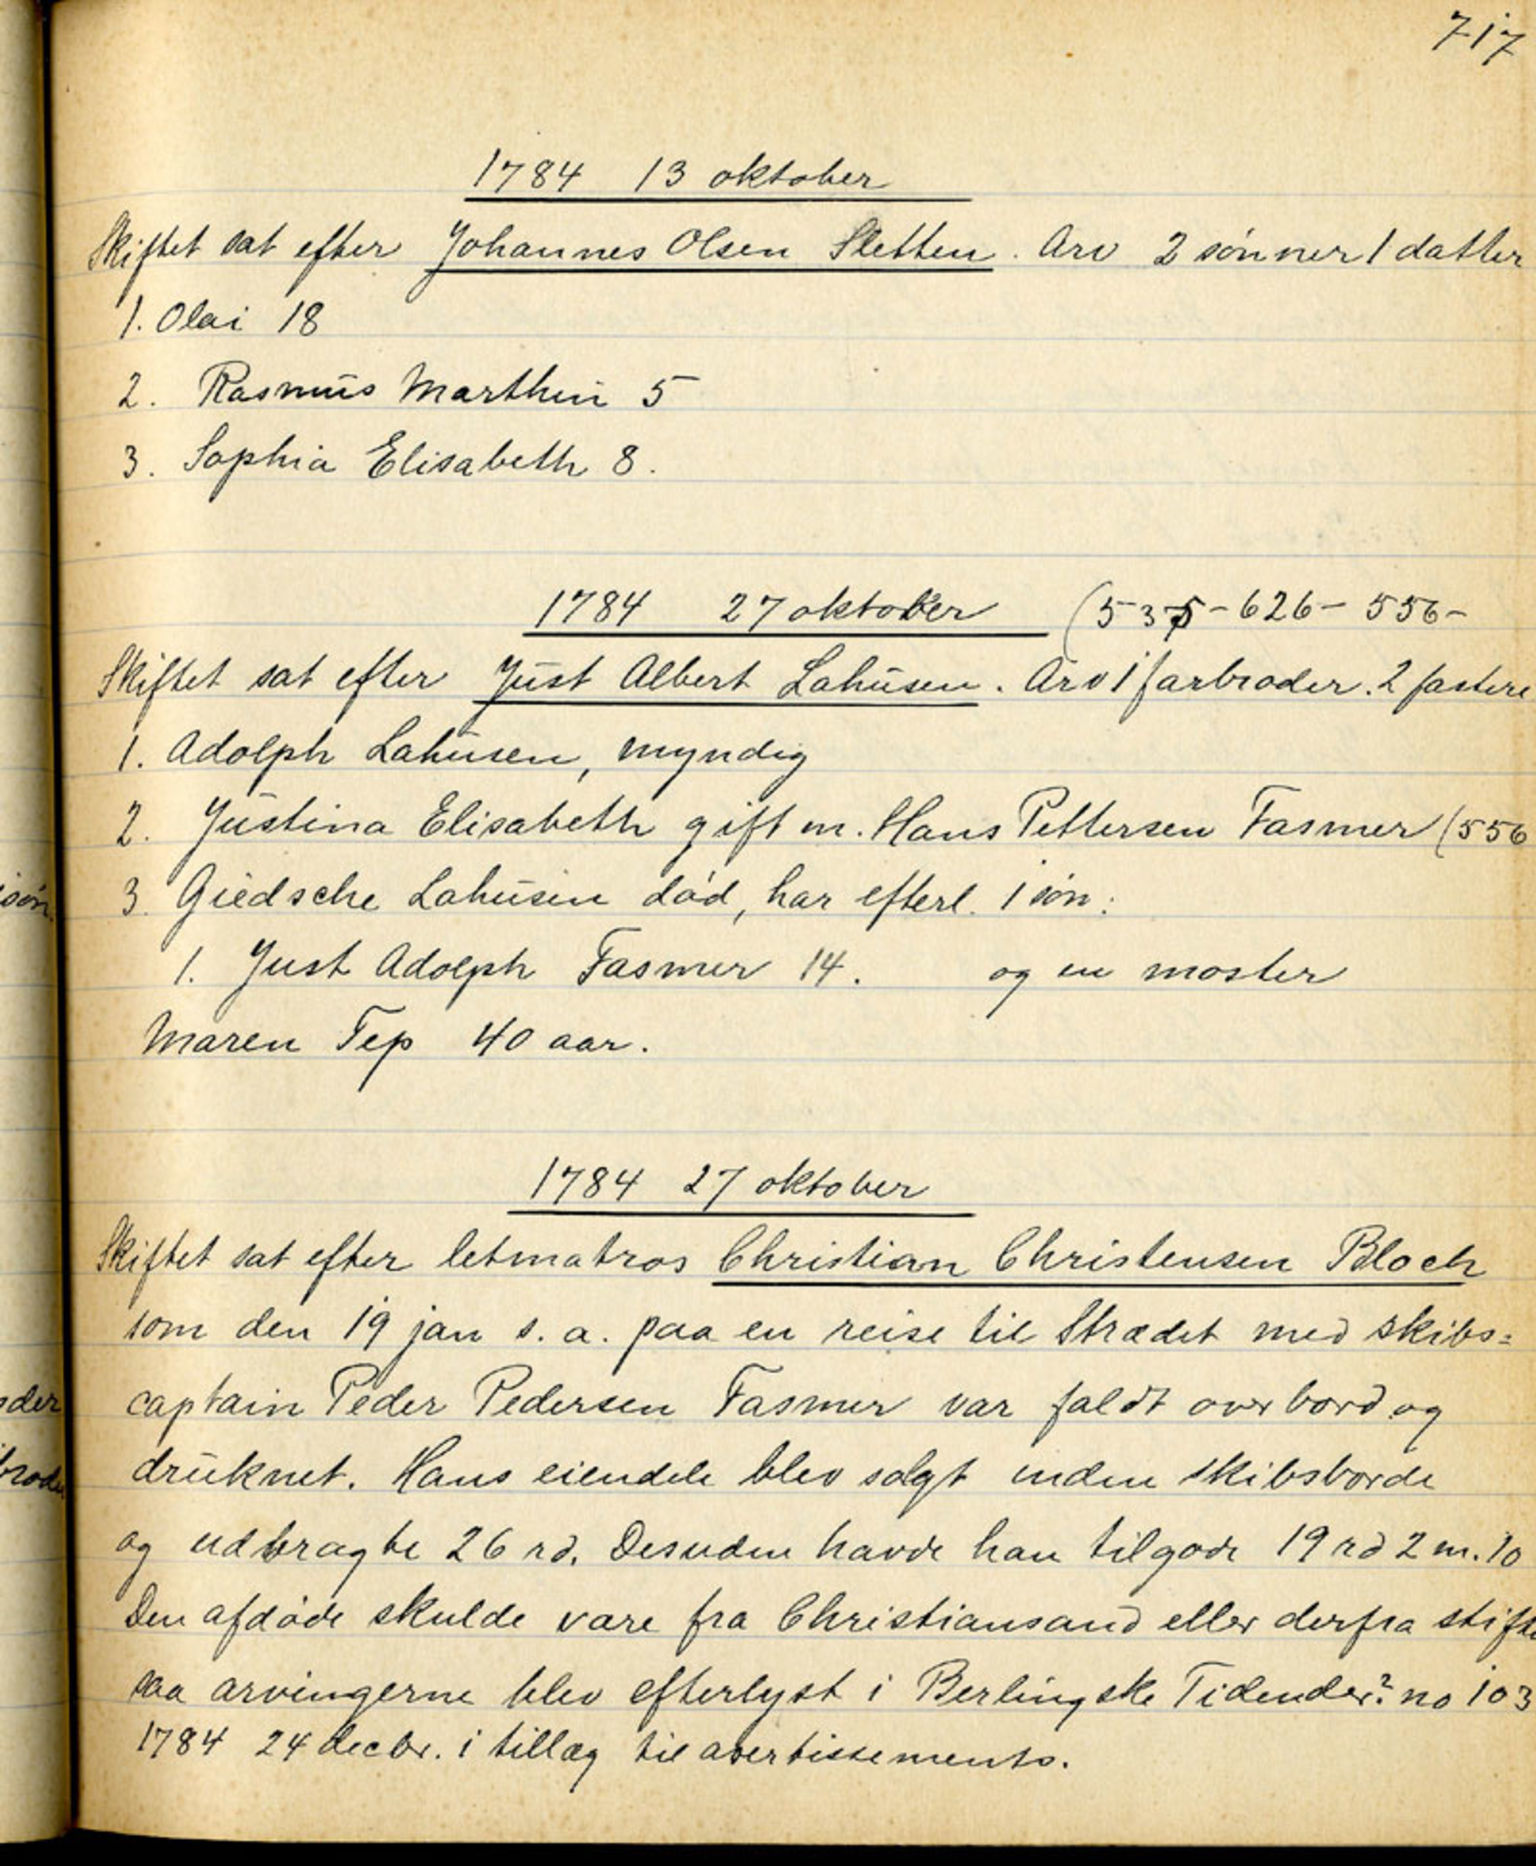 717
1784 13 oktober
Skiftet sat efter Johannes Olsen Sletten. Arv 2 sønner 1 datter
1. Olai 18
2. Rasmus Marthin 5
3. Sophia Elisabeth 8.
1784 27 oktober (535-626-556-
Skiftet sat efter Just Albert Lahusen. Arv 1 farbroder. 2 fastere
1. Adolph Lahusen, myndig
2. Justina Elisabeth gift m. Hans Pettersen Fasmer (556
3. Giedsche Lahusen død, har efterl. 1 søn:
1. Just Adolph Fasmer 14. og en moster
Maren Tep 40 aar.
1784 27 oktober
Skiftet sat efter letmatros Christian Christensen Bloch
som den 19 jan s. a. paa en reise til Strædet med skibs=
captain Peder Pedersen Fasmer var faldt overbord og
druknet. Hans eiendele blev solgt inden skibsborde
og udbragte 26 rd. Desuden havde han tilgode 19 rd 2 m. 10
Den afdøde skulde være fra Christiansand eller derfra stift
saa arvingerne blev efterlyst i Berlingske Tidender? no 103
1784 24 decbr. i tillæg til avertissements.
søn.
der
brode